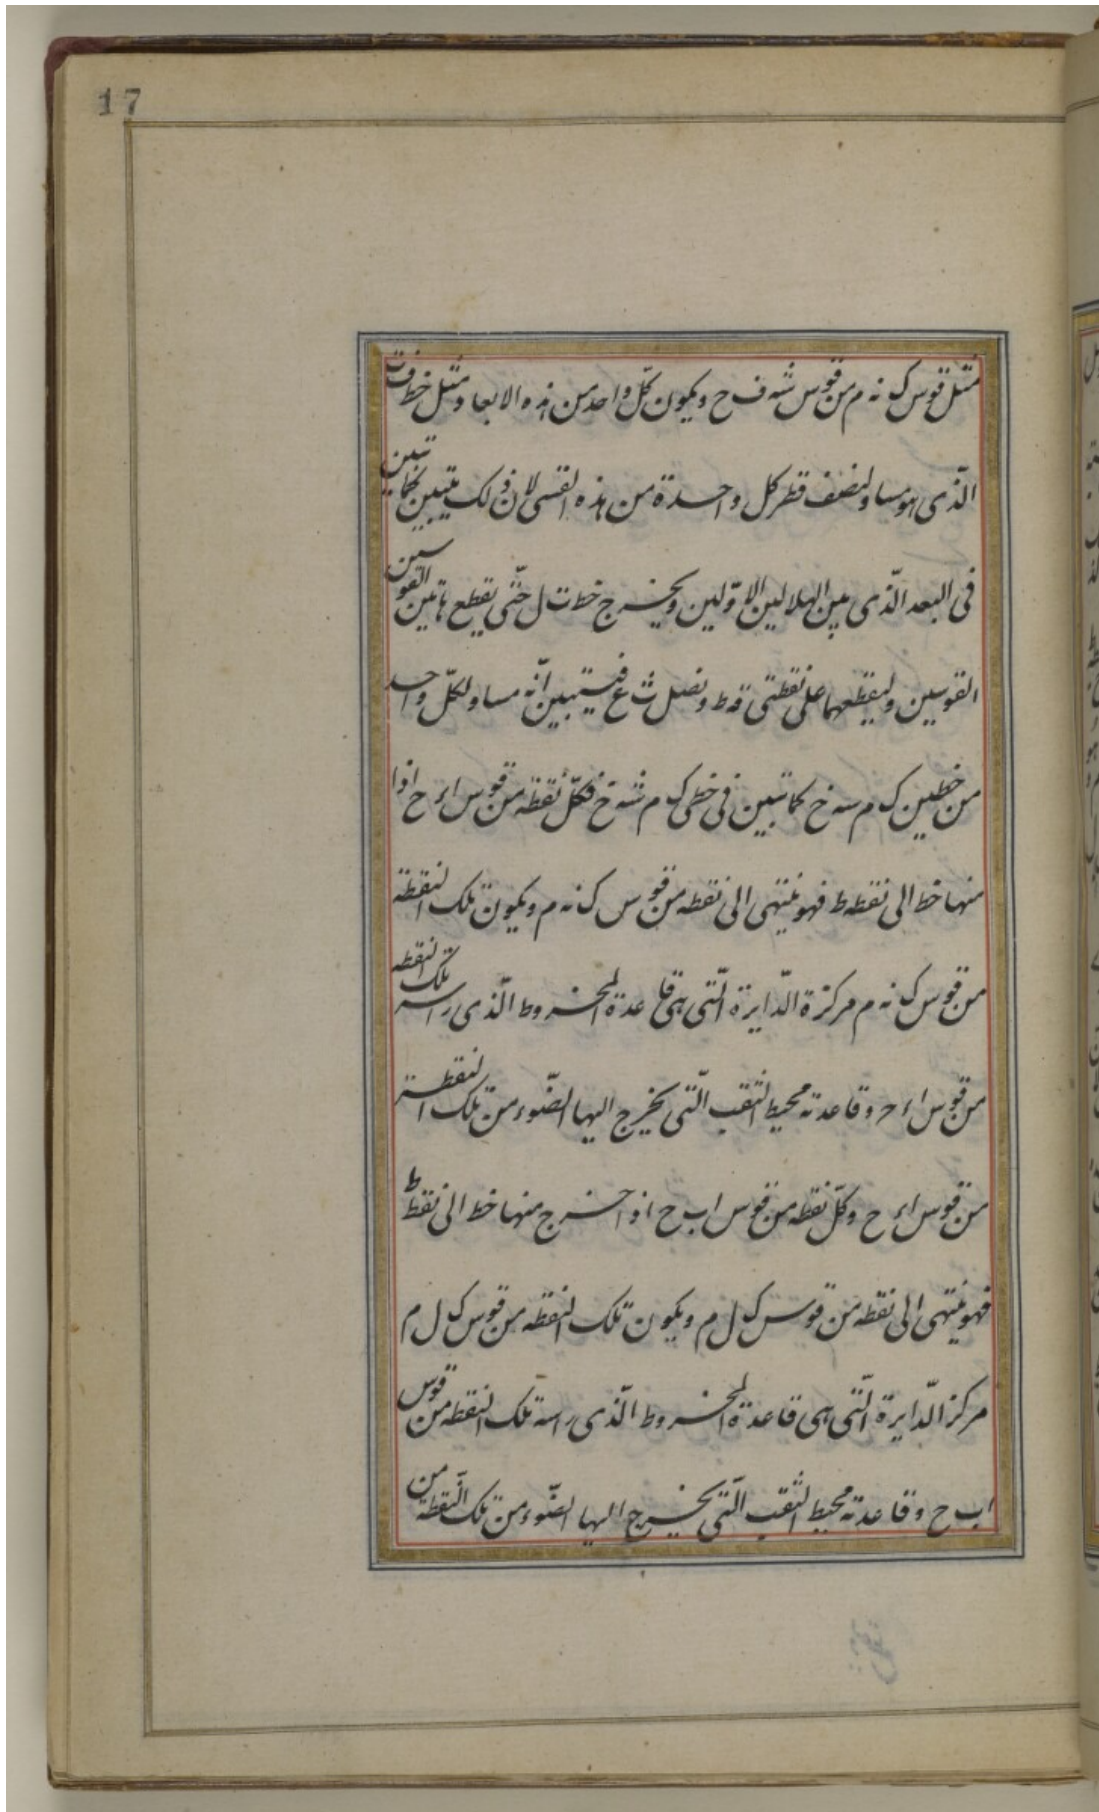 17
مثل قوس ک نه م من قوس شه ف ح ویکون کلّ واحد من هذه الابعاد مثل خط فت
الّذی هو مساو لنصف قطر کل واحدة من هذه القسی لان ذلک یتبین کما تبین
فی البعد الّذی بین الهلالین الاوّلین ویخرج خط ت ل حتّی یقطع هاتین القوسین
القوسین ولیقطعهما علی نقطتی قه ط ونصل ث ع فیتبین انّه مساو لکلّ واحد
من خطین ک م سه خ کما تبین فی خطی ک م شه خ فکلّ نقطه من قوس اء ح اذا
منها خط الی نقطه ط فهو ینتهی الی نقطه من قوس ک نه م ویکون تلک النقطة
من قوس ک نه م مرکزة الدّایرة الّتی هی قاعدة المخروط الّذی راسه تلک النقطه
من قوس اء ح وقاعدته محیط الثقب الّتی یخرج الیها الضّوء من تلک النقطة
من قوس اء ح وکلّ نقطه من قوس اب ح اذا خرج منها خط الی نقطة ط
فهو ینتهی الی نقطه من قوس ک ل م ویکون تلک النقطه من قوس ک ل م
مرکز الدّایرة الّتی هی قاعدة المخروط الّذی راسه تلک النقطه من قوس
اب ح وقاعدته محیط الثقب الّتی یخرج الیها الضّوء من تلک النّقطة من